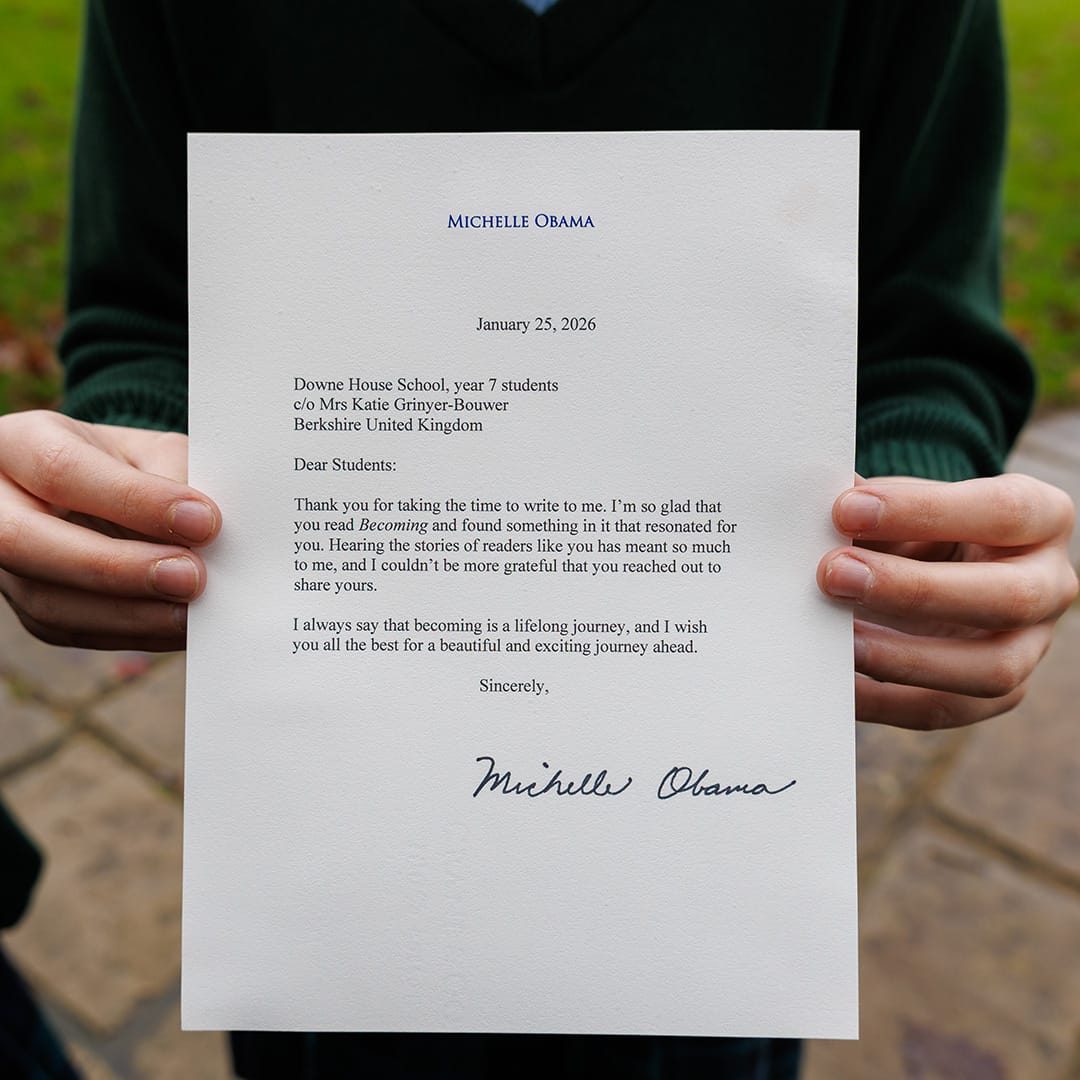 MICHELLE OBAMA
January 25, 2026
Downe House School, year 7 students
c/o Mrs Katie Grinyer-Bouwer
Berkshire United Kingdom
Dear Students:
Thank you for taking the time to write to me. I’m so glad that
you read Becoming and found something in it that resonated for
you. Hearing the stories of readers like you has meant so much
to me, and I couldn’t be more grateful that you reached out to
share yours.
I always say that becoming is a lifelong journey, and I wish
you all the best for a beautiful and exciting journey ahead.
Sincerely,
Michelle Obama